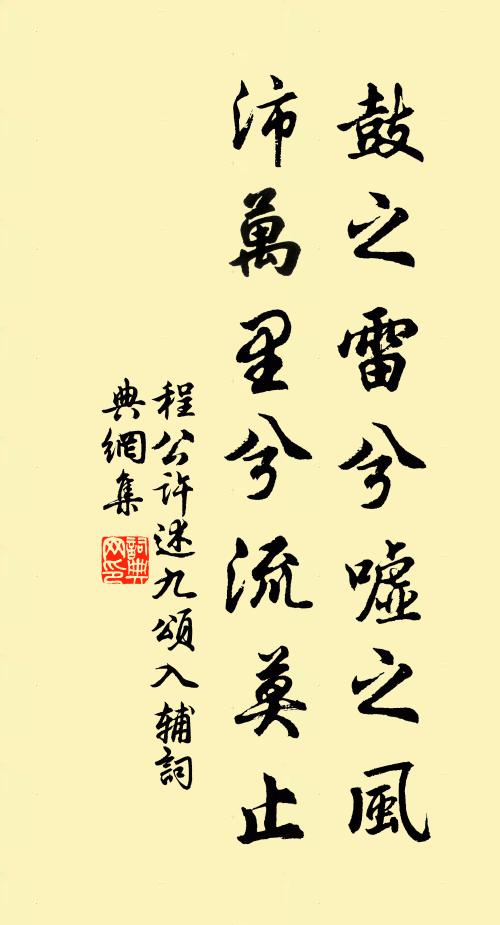 鼓之雷兮嘘之風
沛萬里兮流莫止
程公許述九頌入輔詞
典網集
詞典
网印